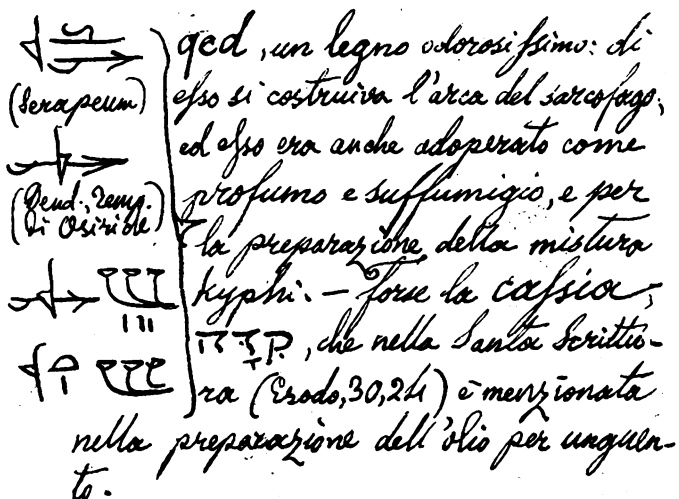 qed, un legno odorosissimo: di
(Serapeum) esso si costruiva l'arca del sarcofago;
ed esso era anche adoperato come
(Dend., Temp. profumo e suffumigio, e per
di Osiride) la preparazione della mistura
kyphi. — Forse la cassia,
קִדָּה, che nella Santa Scrittu-
ra (Esodo, 30,24) è menzionata
nella preparazione dell'olio per unguen-
to.